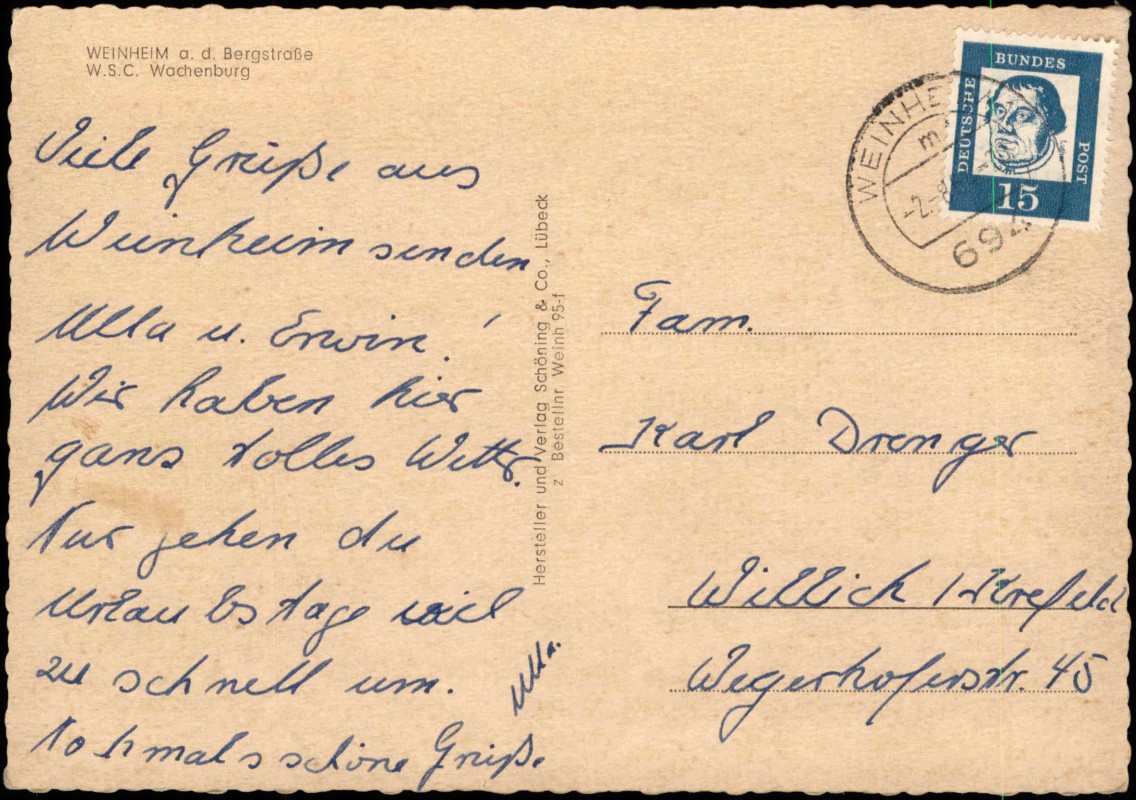 WEINHEIM a. d. Bergstraße
W.S.C. Wachenburg
Viele Grüße aus
Weinheim senden
Ulla u. Erwin!
Wir haben hier
ganz tolles Wettr.
Nur gehen du
Urlaubstage viel
zu schnell um.
Nochmals schöne Grüße
Ulla.
Hersteller und Verlag Schöning & Co., Lübeck
z Bestellnr Weinh 95-f
WEINHEIM
-2.-8
694
DEUTSCHE
BUNDES
POST
15
Fam.
Karl Drenger
Willich / Krefeld
Wegerhoferstr. 45